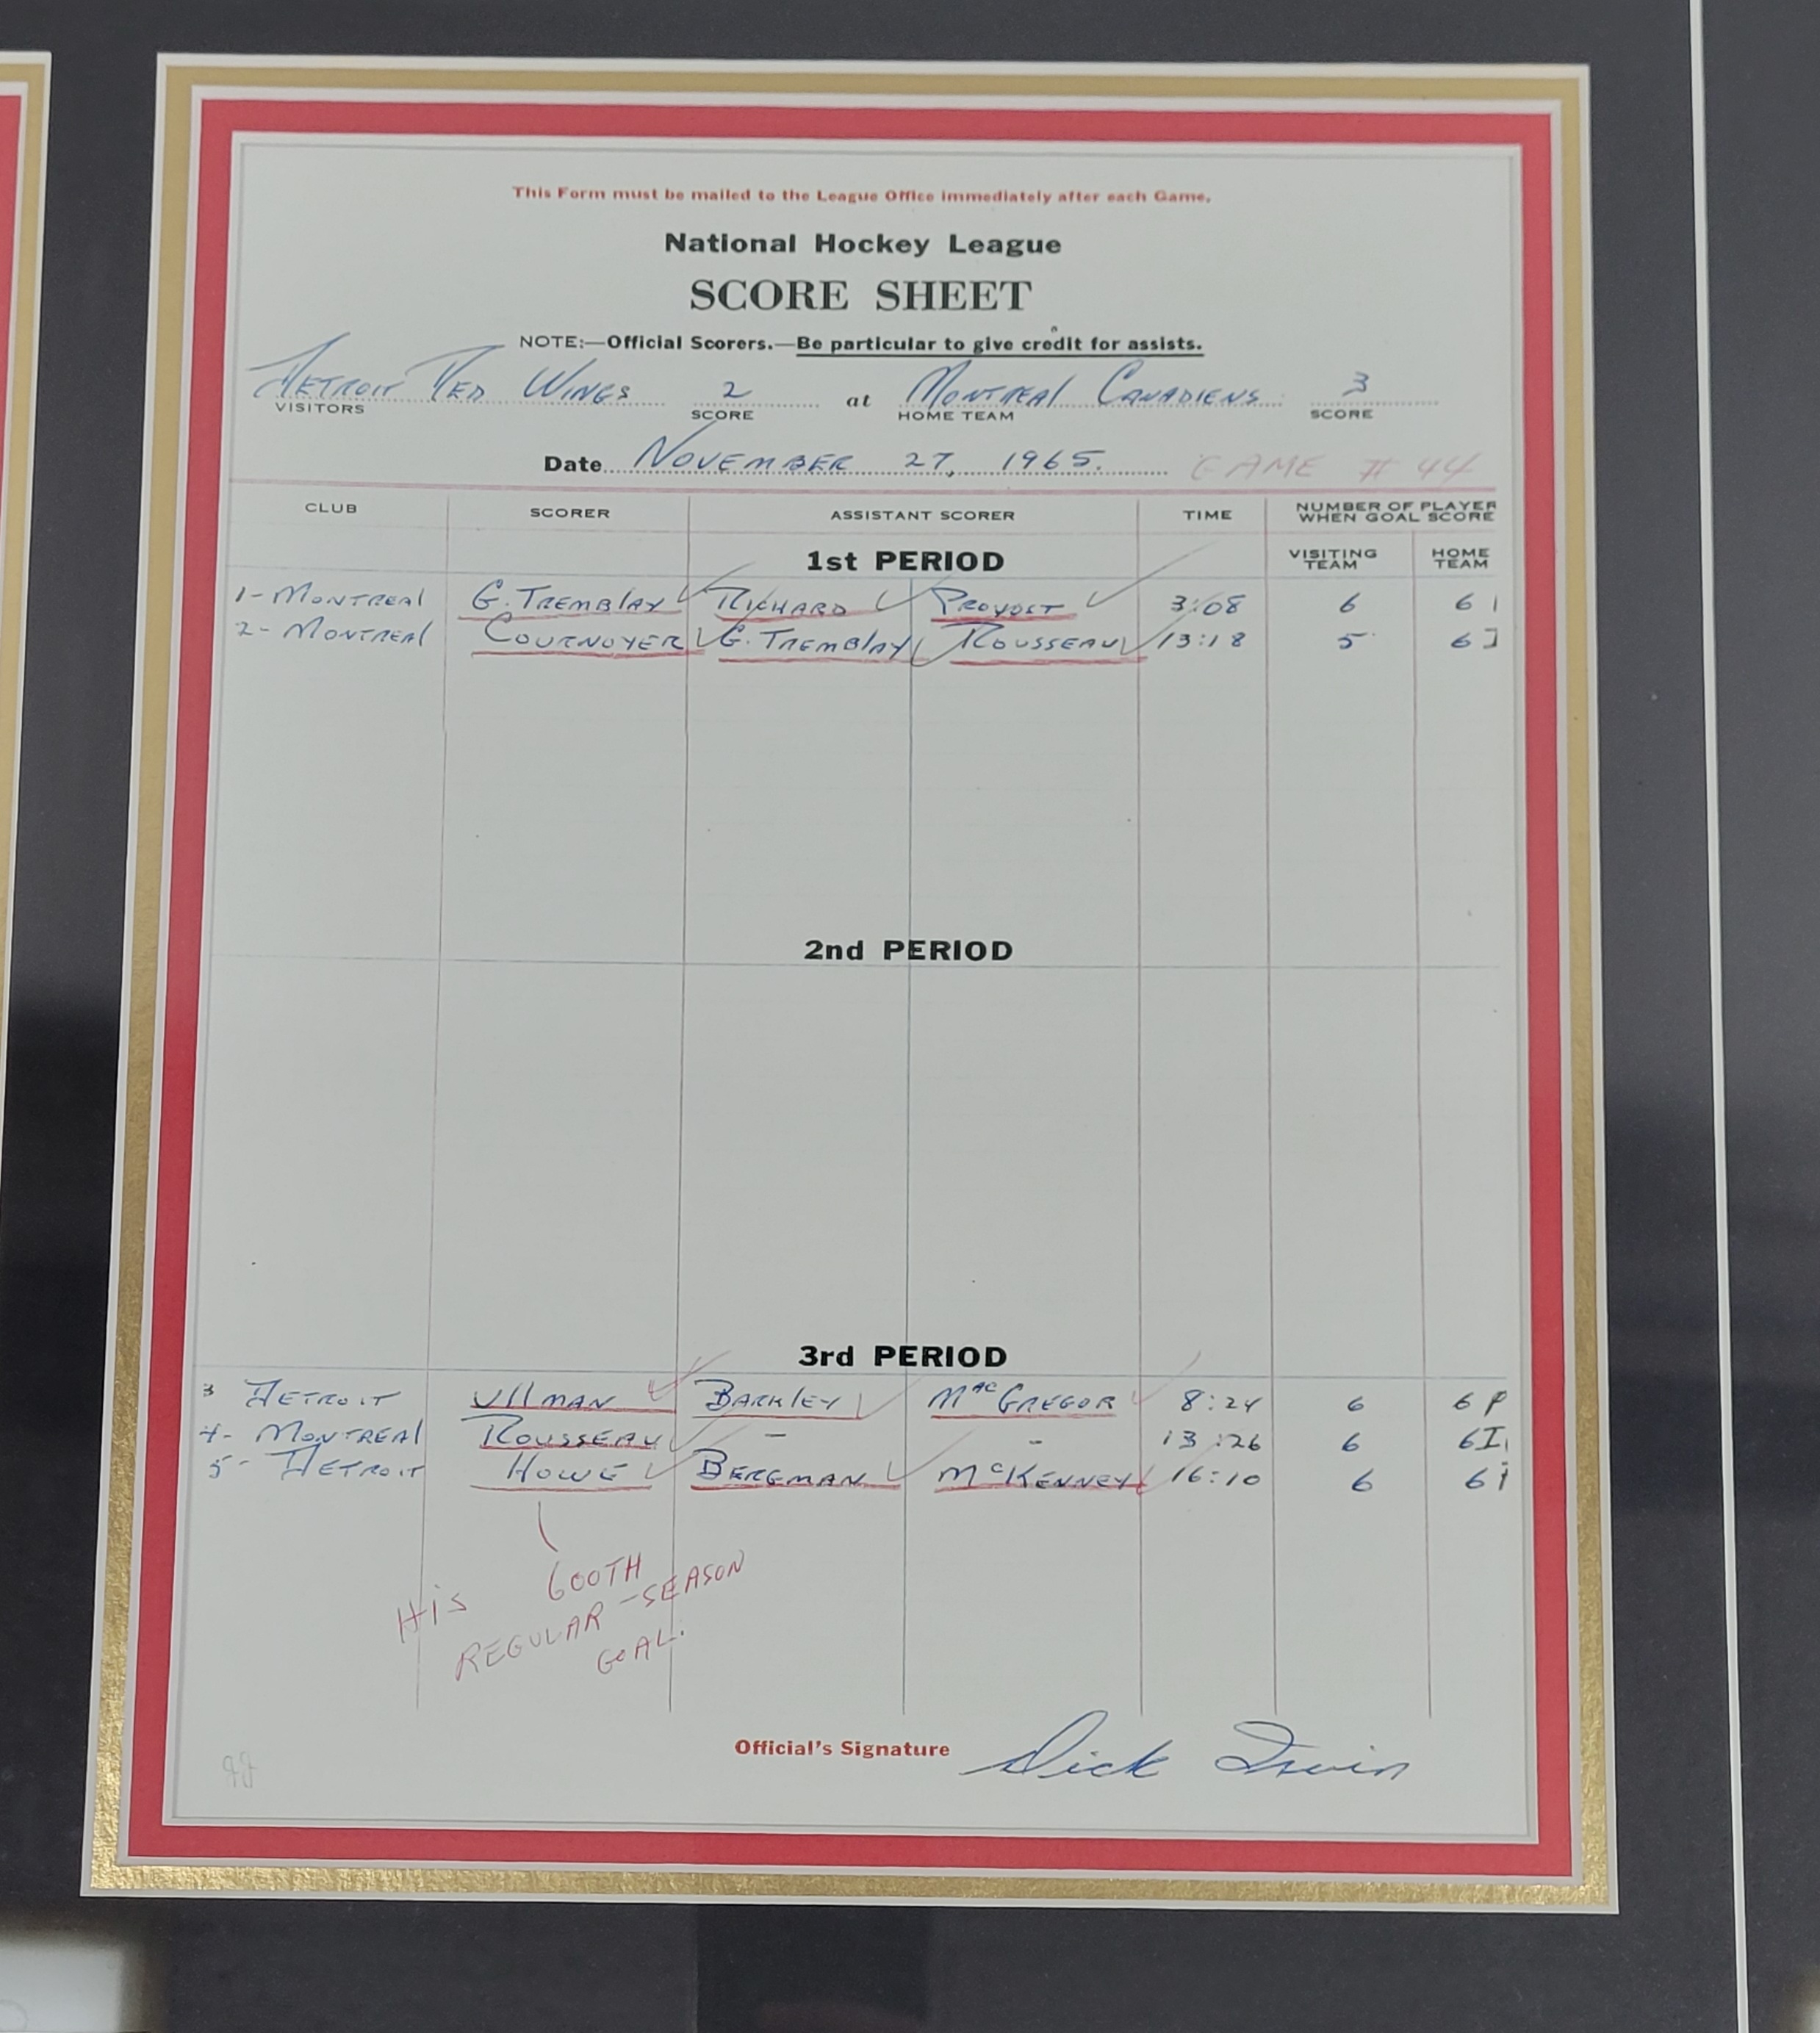 This Form must be mailed to the League Office immediately after each Game.
National Hockey League
SCORE SHEET
NOTE:—Official Scorers.—Be particular to give credit for assists.
DETROIT RED WINGS 2 at MONTREAL CANADIENS 3
VISITORS SCORE HOME TEAM SCORE
Date NOVEMBER 27, 1965. GAME #44
CLUB SCORER ASSISTANT SCORER TIME NUMBER OF PLAYER
WHEN GOAL SCORE
1st PERIOD VISITING TEAM HOME TEAM
1- MONTREAL G. TREMBLAY RICHARD PROVOST 3:08 6 6
2- MONTREAL COURNOYER G. TREMBLAY ROUSSEAU 13:18 5 6
2nd PERIOD
3rd PERIOD
3 DETROIT ULLMAN BARKLEY MACGREGOR 8:24 6 6
4- MONTREAL ROUSSEAU - - 13:26 6 6
5- DETROIT HOWE BERGMAN MCKENNEY 16:10 6 6
HIS 600TH
REGULAR-SEASON
GOAL.
Official's Signature Dick Irvin